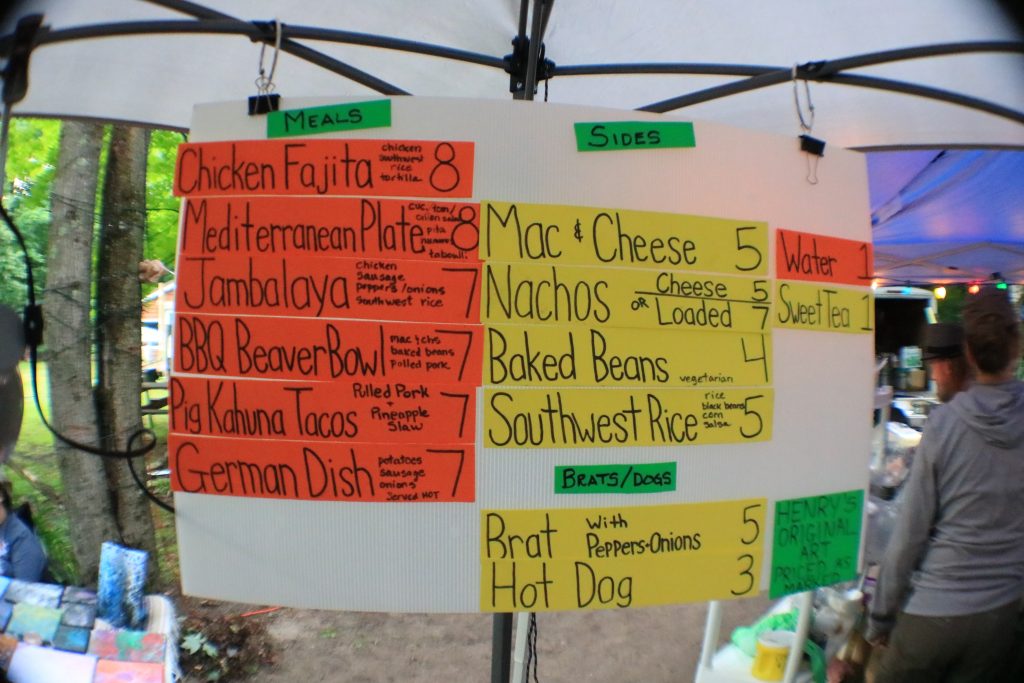 MEALS
Chicken Fajita chicken southwest rice tortilla 8
Mediterranean Plate cuc. tom/ onion salad pita hummus tabouli 8
Jambalaya chicken sausage peppers/onions southwest rice 7
BBQ BeaverBowl mac & chs baked beans pulled pork 7
Pig Kahuna Tacos Pulled Pork + Pineapple Slaw 7
German Dish potatoes sausage onions Served HOT 7
SIDES
Mac & Cheese 5
Nachos Cheese 5
OR Loaded 7
Baked Beans vegetarian 4
Southwest Rice rice black beans corn salsa 5
BRATS/DOGS
Brat With Peppers+Onions 5
Hot Dog 3
Water 1
Sweet Tea 1
HENRY'S
ORIGINAL
ART
PRICED AS
MARKED